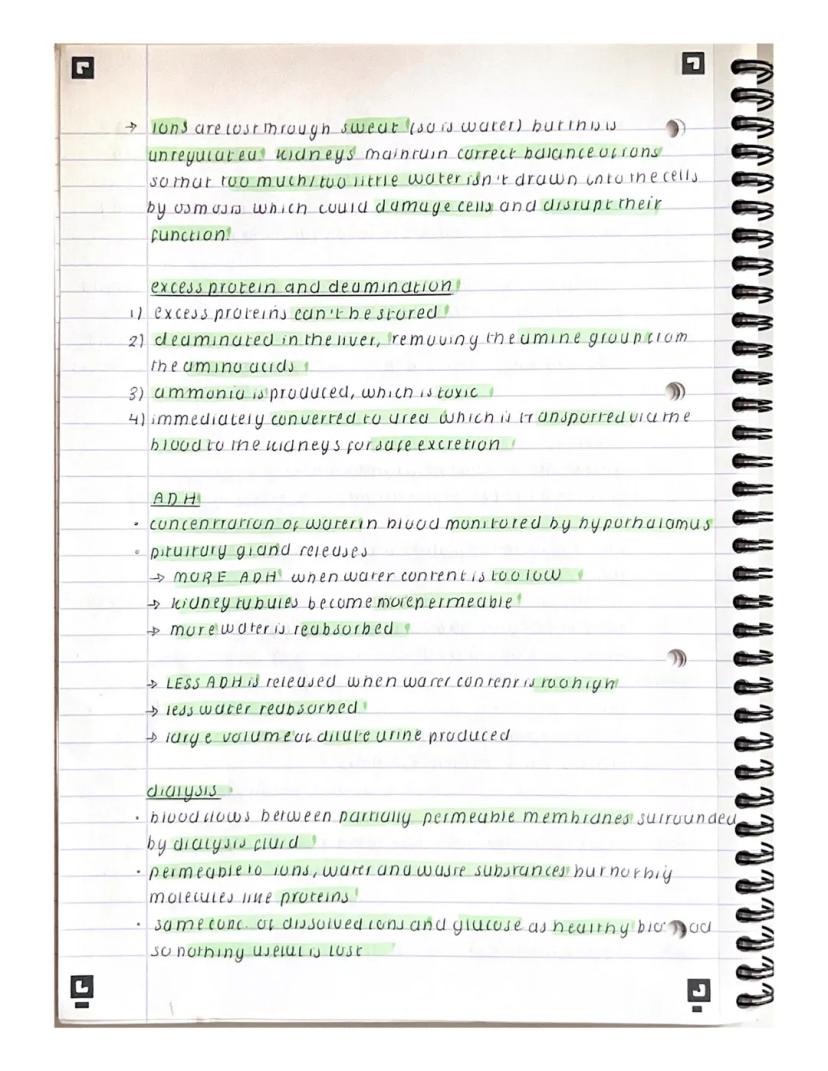 → ions are lost through sweat (so is water) but this is
unregulated. kidneys maintain correct balance of ions
so that too much/too little water isn't drawn into the cells
by osmosis which could damage cells and disrupt their
function.
excess protein and deamination
1) excess proteins can't be stored
2) deaminated in the liver, removing the amine group from
the amino acids
3) ammonia is produced, which is toxic
4) immediately converted to urea which is transported via the
blood to the kidneys for safe excretion
ADH
• concentration of water in blood monitored by hypothalamus
• pituitary gland releases
→ MORE ADH when water content is too low
→ kidney tubules become more permeable
→ more water is reabsorbed
→ LESS ADH is released when water content is too high
→ less water reabsorbed
→ large volume of dilute urine produced
dialysis
• blood flows between partially permeable membranes surrounded
by dialysis fluid
• permeable to ions, water and waste substances but not big
molecules like proteins
• same conc. of dissolved ions and glucose as healthy blood
so nothing useful is lost